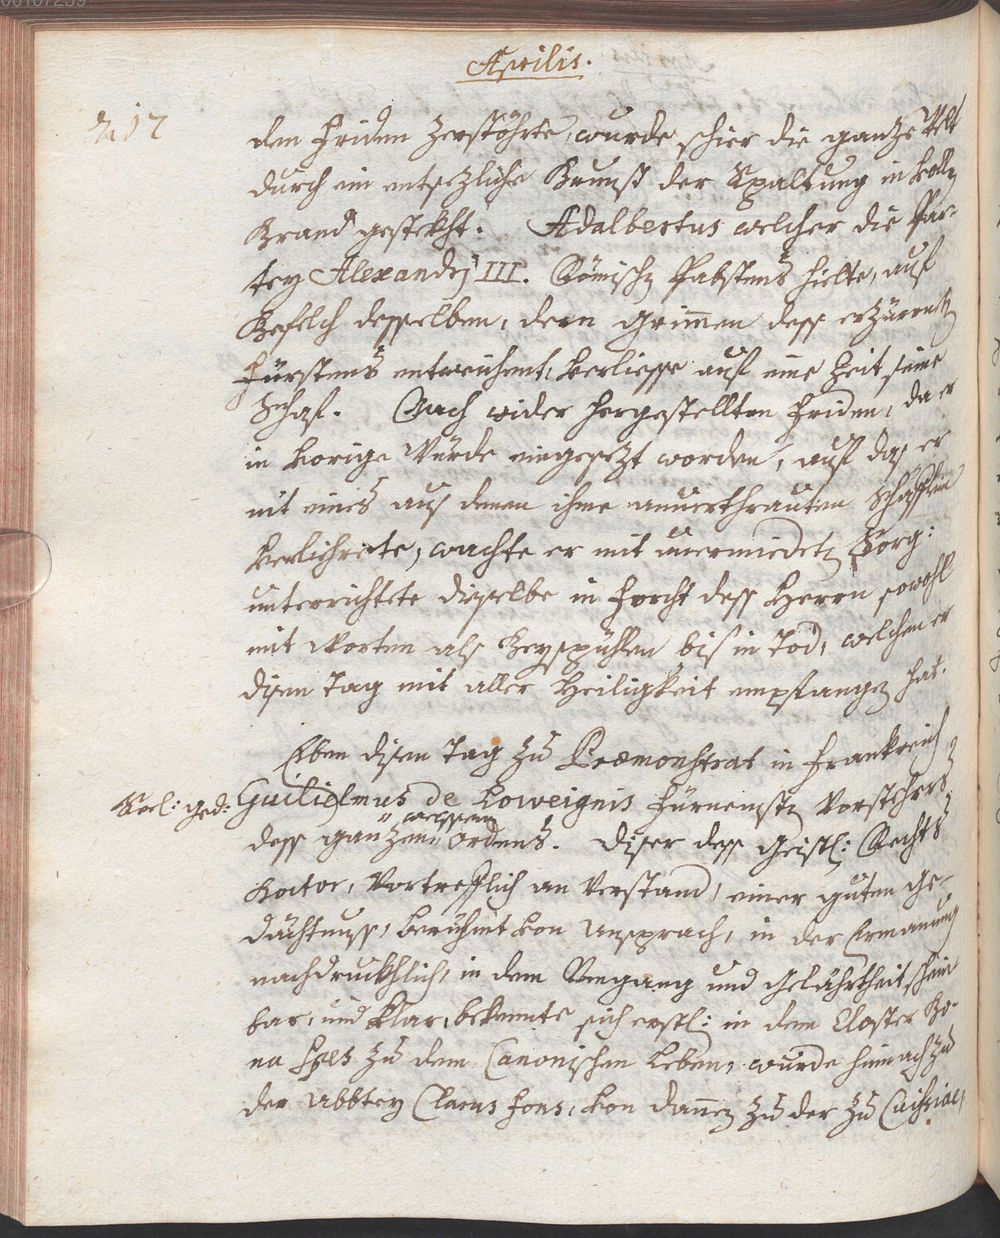 00107239
Aprilis.
den Friden zerstöhrte, wurde schier die gantze Welt
durch ein entsezliche Brunst der Spaltung in vollen
Brand gestekht. Adalbertus welcher die Par-
tey Alexandri III. Römischen Pabstens hielte, auf
Befelch desselben, dem Grimmen dess erzürnten
Fürstens entweichent, verliesse auf eine Zeit seine
Schaf. Nach wider hergestellten Friden, da er
in vorige Würde eingesezt worden, auf das er
nit eines aus denen ihme anuerthrauten Schäfflen
verliehrete, wachte er mit Sorg:
unterrichtete dieselbe in Forcht dess Herrn sowohl
mit Worten als Beyspühlen bis in Tod, welchen er
disen Tag mit aller Heiligkeit empfangen hat.
Eben disen Tag zu Præmonstrat in Frankreich
Guilielmus de Loweignis fürnemsten Vorstehers
weissen
dess gantzen Ordens. Diser dess Geistl: Rechts
Doctor, vortrefflich an Verstand, einer guten Ge-
dächtnuss, berühmt von Ansprach, in der Ermanung
nachdrukhlich, in dem Umgang und Gelährtheit schein-
bar, und klar, bekennte sich erstl: in dem Closter Bo-
na Spes zu dem Canonischen Leben, wurde hinnach zu
der Abbtey Clarus fons, von dannen zu der zu